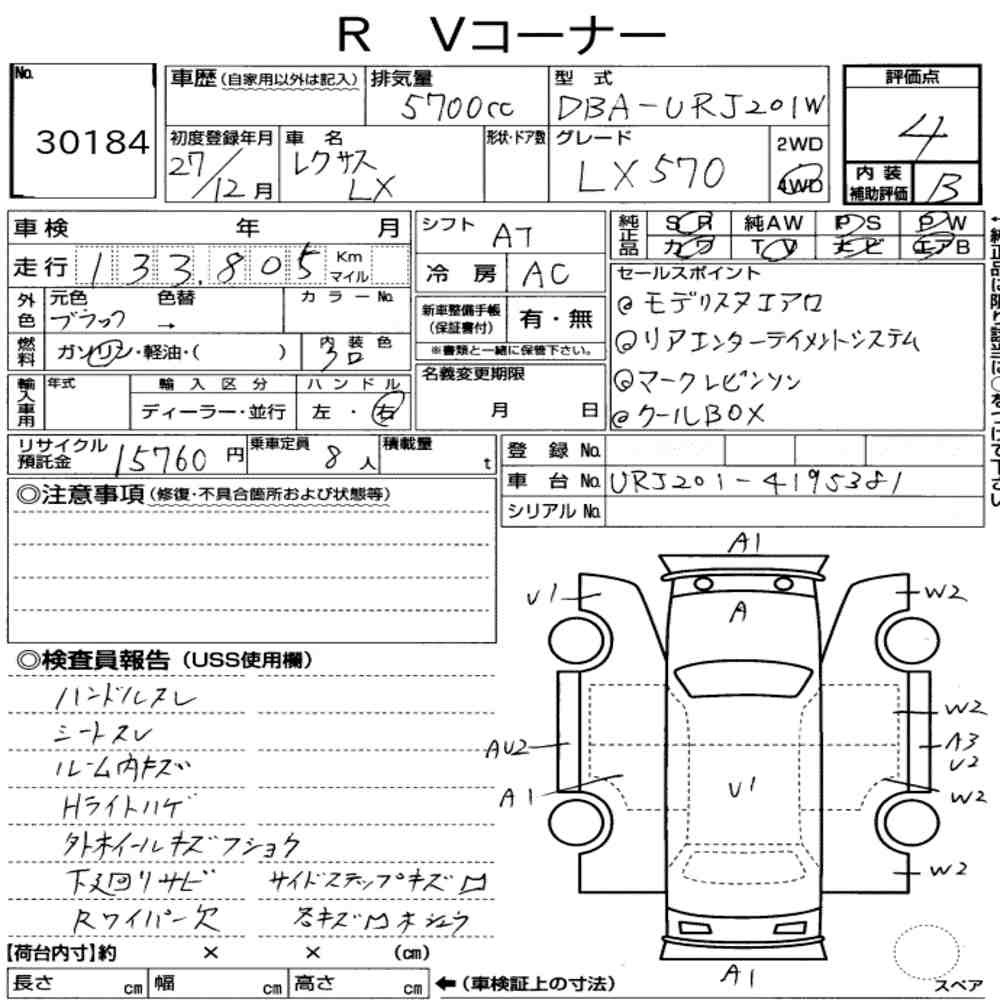 R Vコーナー
No.
30184
車歴(自家用以外は記入)
排気量
5700cc
型式
DBA-URJ201W
評価点
4
初度登録年月
27/12月
車名
レクサス
LX
形状・ドア数
グレード
LX570
2WD
4WD
内装
補助評価
B
車検 年 月
シフト
AT
純正品
SR 純AW PS PW
カワ TV ナビ エアB
走行 133,805 Km
マイル
冷房 AC
セールスポイント
@モデリスタエアロ
@リアエンターテイメントシステム
@マークレビンソン
@クールBOX
外色
元色 色替 カラーNo.
ブラック →
新車整備手帳
(保証書付)
有・無
※書類と一緒に保管下さい。
燃料
ガソリン・軽油・( )
内装色
クロ
名義変更期限
月 日
輸入車用
年式
輸入区分
ハンドル
ディーラー・並行
左・右
リサイクル
預託金
15760円
乗車定員
8人
積載量
t
登録No.
車台No. URJ201-4195381
シリアルNo.
◎注意事項(修復・不具合箇所および状態等)
◎検査員報告(USS使用欄)
ハンドルスレ
シートスレ
ルーム内キズ
Hライトハゲ
外ホイールキズフショク
下廻リサビ
サイドステップキズ凹
Rワイパー欠
各キズ凹ホシュウ
A1
V1
A
W2
W2
AU2
A3
U2
A1
U1
W2
W2
A1
スペア
【荷台内寸】約 × × (cm)
長さ cm 幅 cm 高さ cm
←(車検証上の寸法)